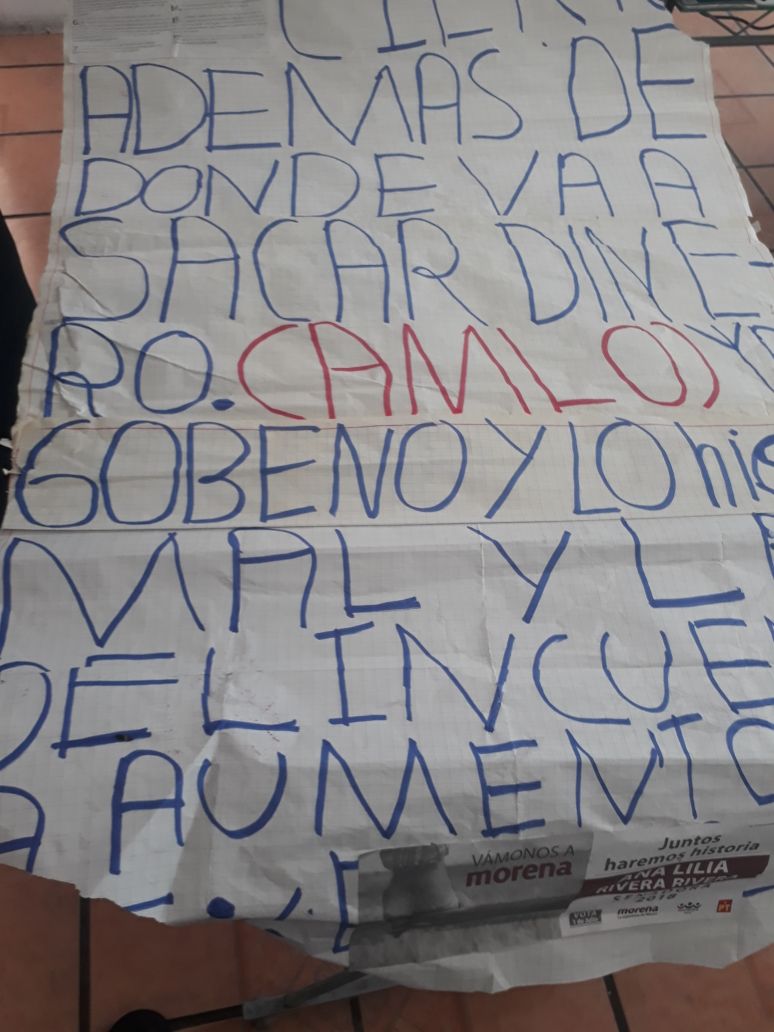 ADEMAS DE
DONDE VA A
SACAR DINE-
RO. (AMLO) YA
GOBENO Y LO his
MAL Y L
DELINCUE
A AUMENTO
VÁMONOS A
morena
Juntos
haremos historia
ANA LILIA
RIVERA RIVERA
SENADORA
2018
VOTA
morena
PT